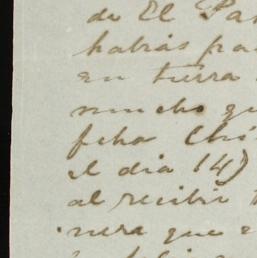 de El Pa
habrás pa
en tierra
mucho qu
fcha Chi
el dia 14)
al recibir
nera que e